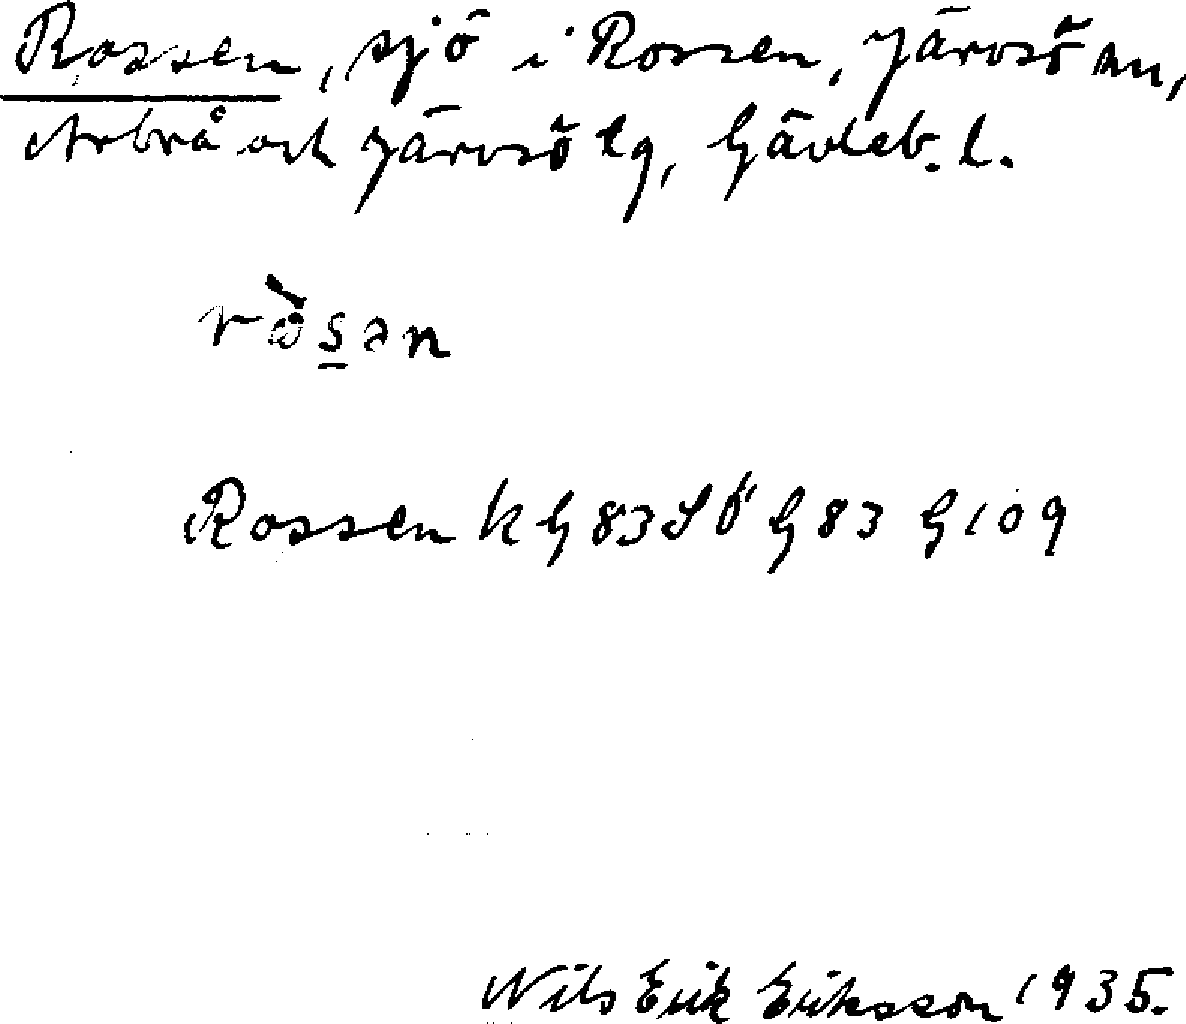 Rossen, sjö i Rossen, Järvsö sn,
Arbrå och Järvsö tg, Gävleb. l.
rås̲ən
Rossen k G 83 SÖ G 83 G 109
Nils Erik Eriksson 1935.